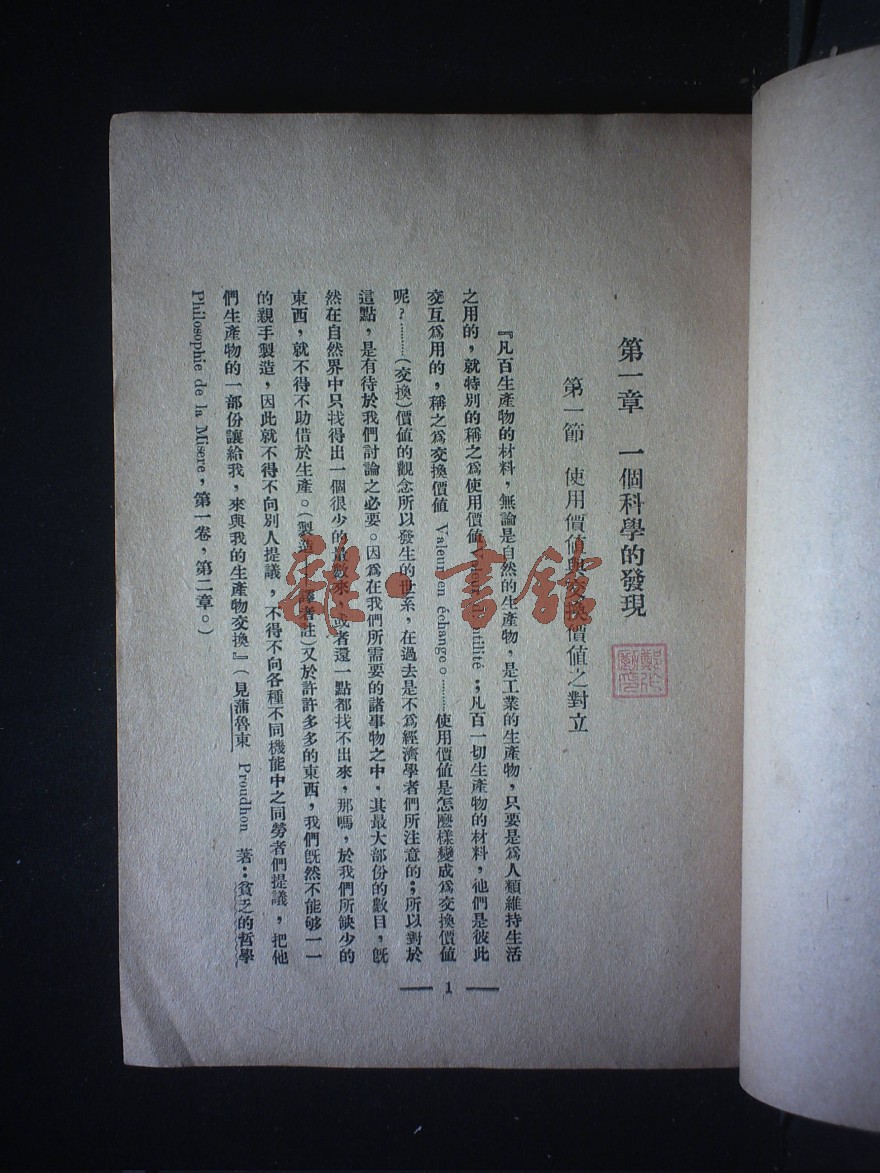 第一章 一個科學的發現
第一節 使用價値與交換價値之對立
『凡百生產物的材料，無論是自然的生產物，是工業的生產物，只要是爲人類維持生活
之用的，就特別的稱之爲使用價値 utilité；凡百一切生產物的材料，他們是彼此
交互爲用的，稱之爲交換價値 Valeur en échange。………使用價値是怎麼樣變成爲交換價値
呢？………（交換）價値的觀念所以發生的世系，在過去是不爲經濟學者們所注意的；所以對於
這點，是有待於我們討論之必要。因爲在我們所需要的諸事物之中，其最大部份的數目，旣
然在自然界中只找得出一個很少的數來，或者還一點都找不出來，那嗎，於我們所缺少的
東西，就不得不助借於生產。（製造 譯者註）又於許許多多的東西，我們旣然不能够一一
的親手製造，因此就不得不向別人提議，不得不向各種不同機能中之同勞者們提議，把他
們生產物的一部份讓給我，來與我的生產物交換』（見蒲魯東 Proudhon 著：貧乏的哲學
Philosophie de la Misere，第一卷，第二章。）
— 1 —
雜·書館